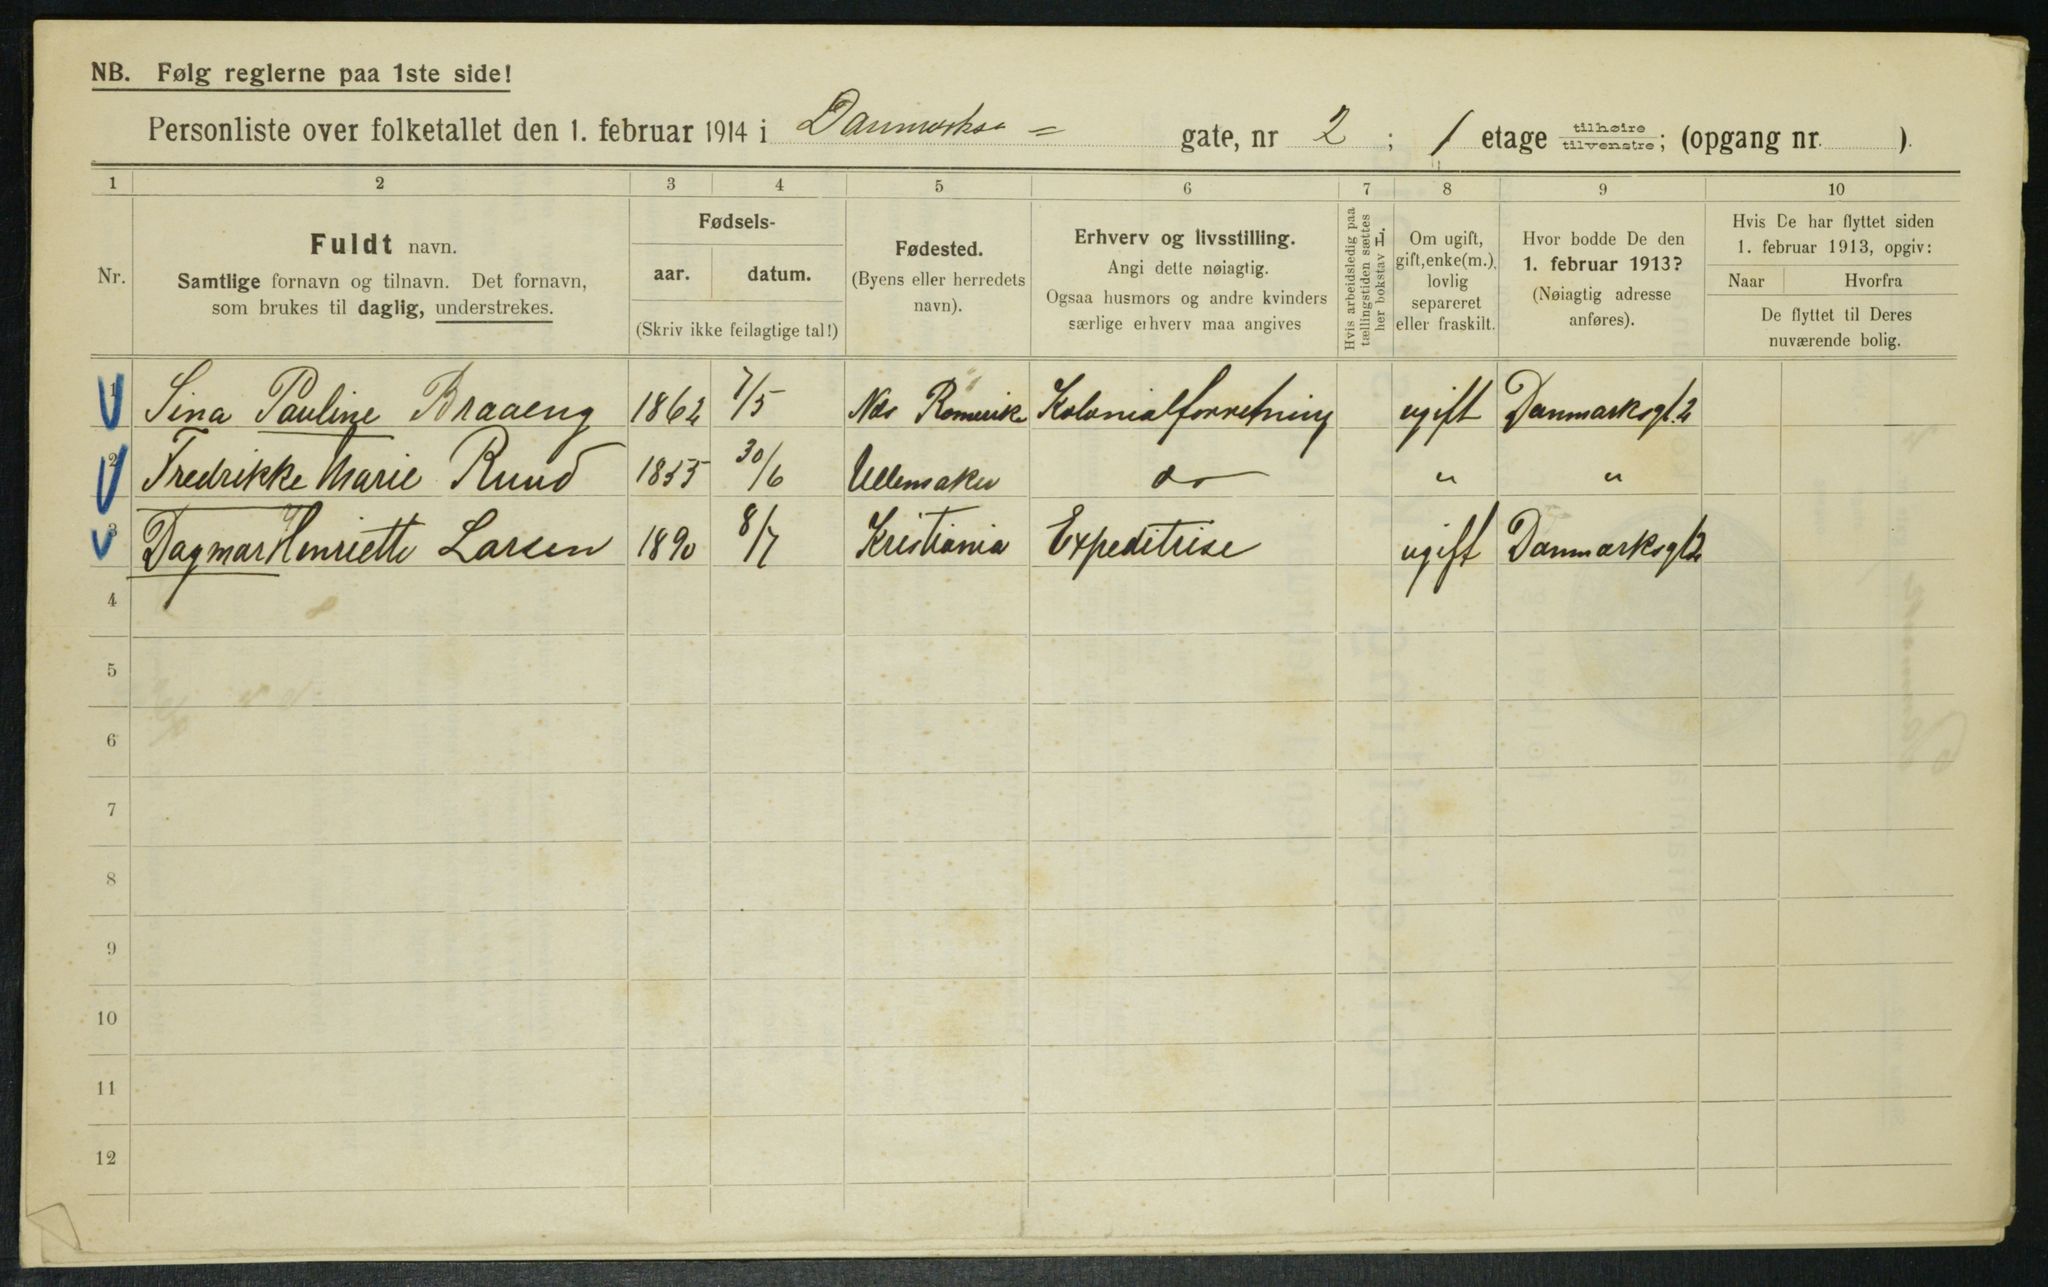 NB. Følg reglerne paa 1ste side!
Personliste over folketallet den 1. februar 1914 i Danmarks = gate, nr 2 ; 1 etage tilhøire tilvenstre; (opgang nr. ).
1 2 3 4 5 6 7 8 9 10
Nr.
Fuldt navn.
Samtlige fornavn og tilnavn. Det fornavn,
som brukes til daglig, understrekes.
Fødsels-
aar. datum.
(Skriv ikke feilagtige tal!)
Fødested.
(Byens eller herredets
navn).
Erhverv og livsstilling.
Angi dette nøiagtig.
Ogsaa husmors og andre kvinders
særlige erhverv maa angives
Hvis arbeidsledig paa
tællingstiden sættes
her bokstav L.
Om ugift,
gift, enke(m.),
lovlig
separeret
eller fraskilt.
Hvor bodde De den
1. februar 1913?
(Nøiagtig adresse
anføres).
Hvis De har flyttet siden
1. februar 1913, opgiv:
Naar Hvorfra
De flyttet til Deres
nuværende bolig.
1 Sina Pauline Braaeng 1862 7/5 Næs Romerike Kolonialforretning ugift Danmarksgt. 2
2 Fredrikke Marie Ruud 1855 30/6 Ullensaker do " "
3 Dagmar Henriette Larsen 1890 8/7 Kristiania Expeditrise ugift Danmarksgt 2
4
5
6
7
8
9
10
11
12